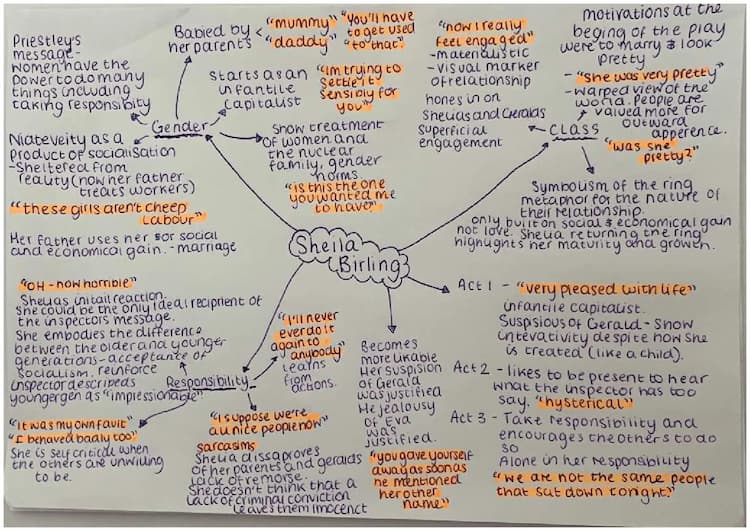 Priestley's
message -
women have the
power to do many
things including
taking responsibity
Babied by
her parents
"mummy"
"daddy"
"You'll have
to get used
to that."
Starts as an
infantile
capitalist
"Im trying to
settle it
sensibly for
you"
Gender
Show treatment
of women and
the nuclear
family, gender
norms
"is this the one
you wanted me
to have"
Niateveity as a
product of socialisation
- Sheltered from
reality (how her father
treats workers)
"these girls aren't cheep
Labour"
Her father uses her for social
and economical gain. - marriage
"now I really
feel engaged"
- materialistic
- visual marker
of relationship
hones in on
Sheilas and Geralds
superficial
engagement
motivations at the
beging of the play
were to marry & look
pretty
- "she was very pretty"
- warped view of the
world. People are
valued more for
outward
apperence.
"was she
pretty?"
CLASS
Symbolism of the ring
metaphor for the nature of
their relationship
only built on social & economical gain
not love. Sheila returning the ring
highlights her maturity and growth.
Sheila
Birling
"OH - how horrible"
Sheilas initail reaction.
She could be the only ideal reciprient of
the inspectors message.
She embodies the difference
between the older and younger
generations - acceptance of
socialism. reinforce
inspector descripeds
younger gen as "impressionable"
Responsibility
"I'll never
ever do it
again to
anybody"
learns
from
actions.
"It was my own fault"
"I behaved badly too"
She is self critical when
the others are unwilling
to be.
"I suppose we're
all nice people now"
sarcasims
Sheila dissaproves
of her parents and geralds
lack of remorse.
She doesn't think that a
lack of criminal conviction
leaves them imocenct
Becomes
more likable
Her suspision
of Gerald
was justified
He jealousy
of Eva
was
justified.
"you gave yourself
away as soon as
he mentioned
her other
name"
Act 1 - "very pleased with life"
infantile capitalist.
Suspisious of Gerald - Show
intevativity despite how she
is created (like a child).
Act 2 - likes to be present to hear
what the inspector has too
say. "hysterical"
Act 3 - Take responsibility and
encourages the others to do
so
Alone in her responsibility
"we are not the same people
that sat down tonight?"